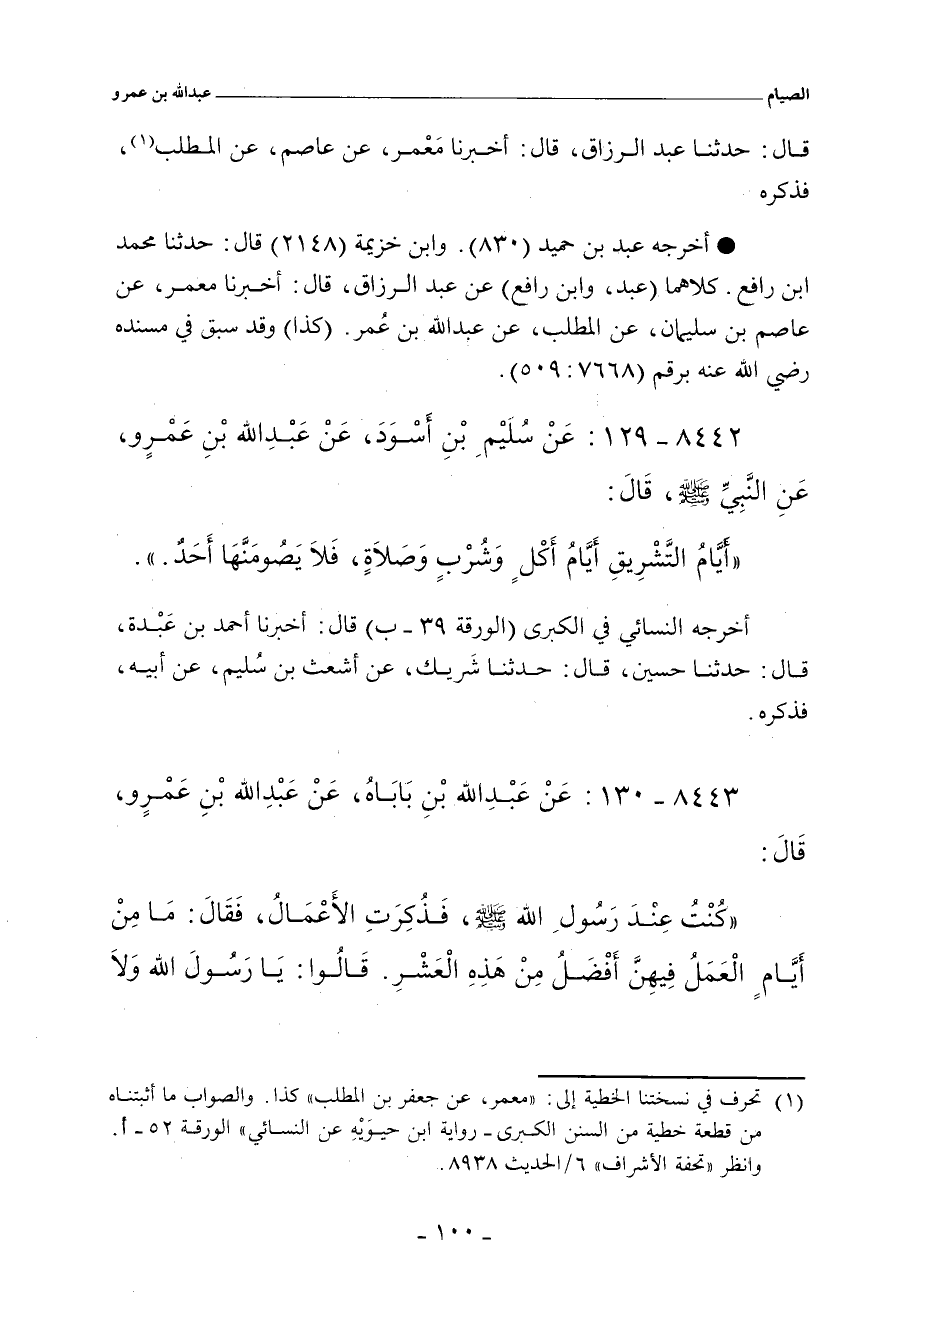 الصيام ــــــ عبدالله بن عمرو
قال: حدثنا عبد الرزاق، قال: أخبرنا مَعْمر، عن عاصم، عن المطلب(١)،
فذكره
● أخرجه عبد بن حميد (٨٣٠). وابن خزيمة (٢١٤٨) قال: حدثنا محمد
ابن رافع. كلاهما (عبد، وابن رافع) عن عبد الرزاق، قال: أخبرنا معمر، عن
عاصم بن سليمان، عن المطلب، عن عبدالله بن عُمر. (كذا) وقد سبق في مسنده
رضي الله عنه برقم (٧٦٦٨: ٥٠٩).
٨٤٤٢ - ١٢٩: عَنْ سُلَيْمِ بْنِ أَسْوَدَ، عَنْ عَبْدِالله بْنِ عَمْرٍو،
عَنِ النَّبِيِّ ﷺ، قَالَ:
«أَيَّامُ التَّشْرِيقِ أَيَّامُ أَكْلٍ وَشُرْبٍ وَصَلاَةٍ، فَلاَ يَصُومَنَّهَا أَحَدٌ.».
أخرجه النسائي في الكبرى (الورقة ٣٩ - ب) قال: أخبرنا أحمد بن عَبْدة،
قال: حدثنا حسين، قال: حدثنا شَريك، عن أشعث بن سُليم، عن أبيه،
فذكره.
٨٤٤٣ - ١٣٠: عَنْ عَبْدِالله بْنِ بَابَاهُ، عَنْ عَبْدِالله بْنِ عَمْرٍو،
قَالَ:
«كُنْتُ عِنْدَ رَسُولِ الله ﷺ، فَذُكِرَتِ الأَعْمَالُ، فَقَالَ: مَا مِنْ
أَيَّامٍ الْعَمَلُ فِيهِنَّ أَفْضَلُ مِنْ هَذِهِ الْعَشْرِ. قَالُوا: يَا رَسُولَ الله وَلاَ
(١) تحرف في نسختنا الخطية إلى: «معمر، عن جعفر بن المطلب» كذا. والصواب ما أثبتناه
من قطعة خطية من السنن الكبرى - رواية ابن حيوَيْهِ عن النسائي» الورقة ٥٢ - أ.
وانظر «تحفة الأشراف» ٦/الحديث ٨٩٣٨.
- ١٠٠ -